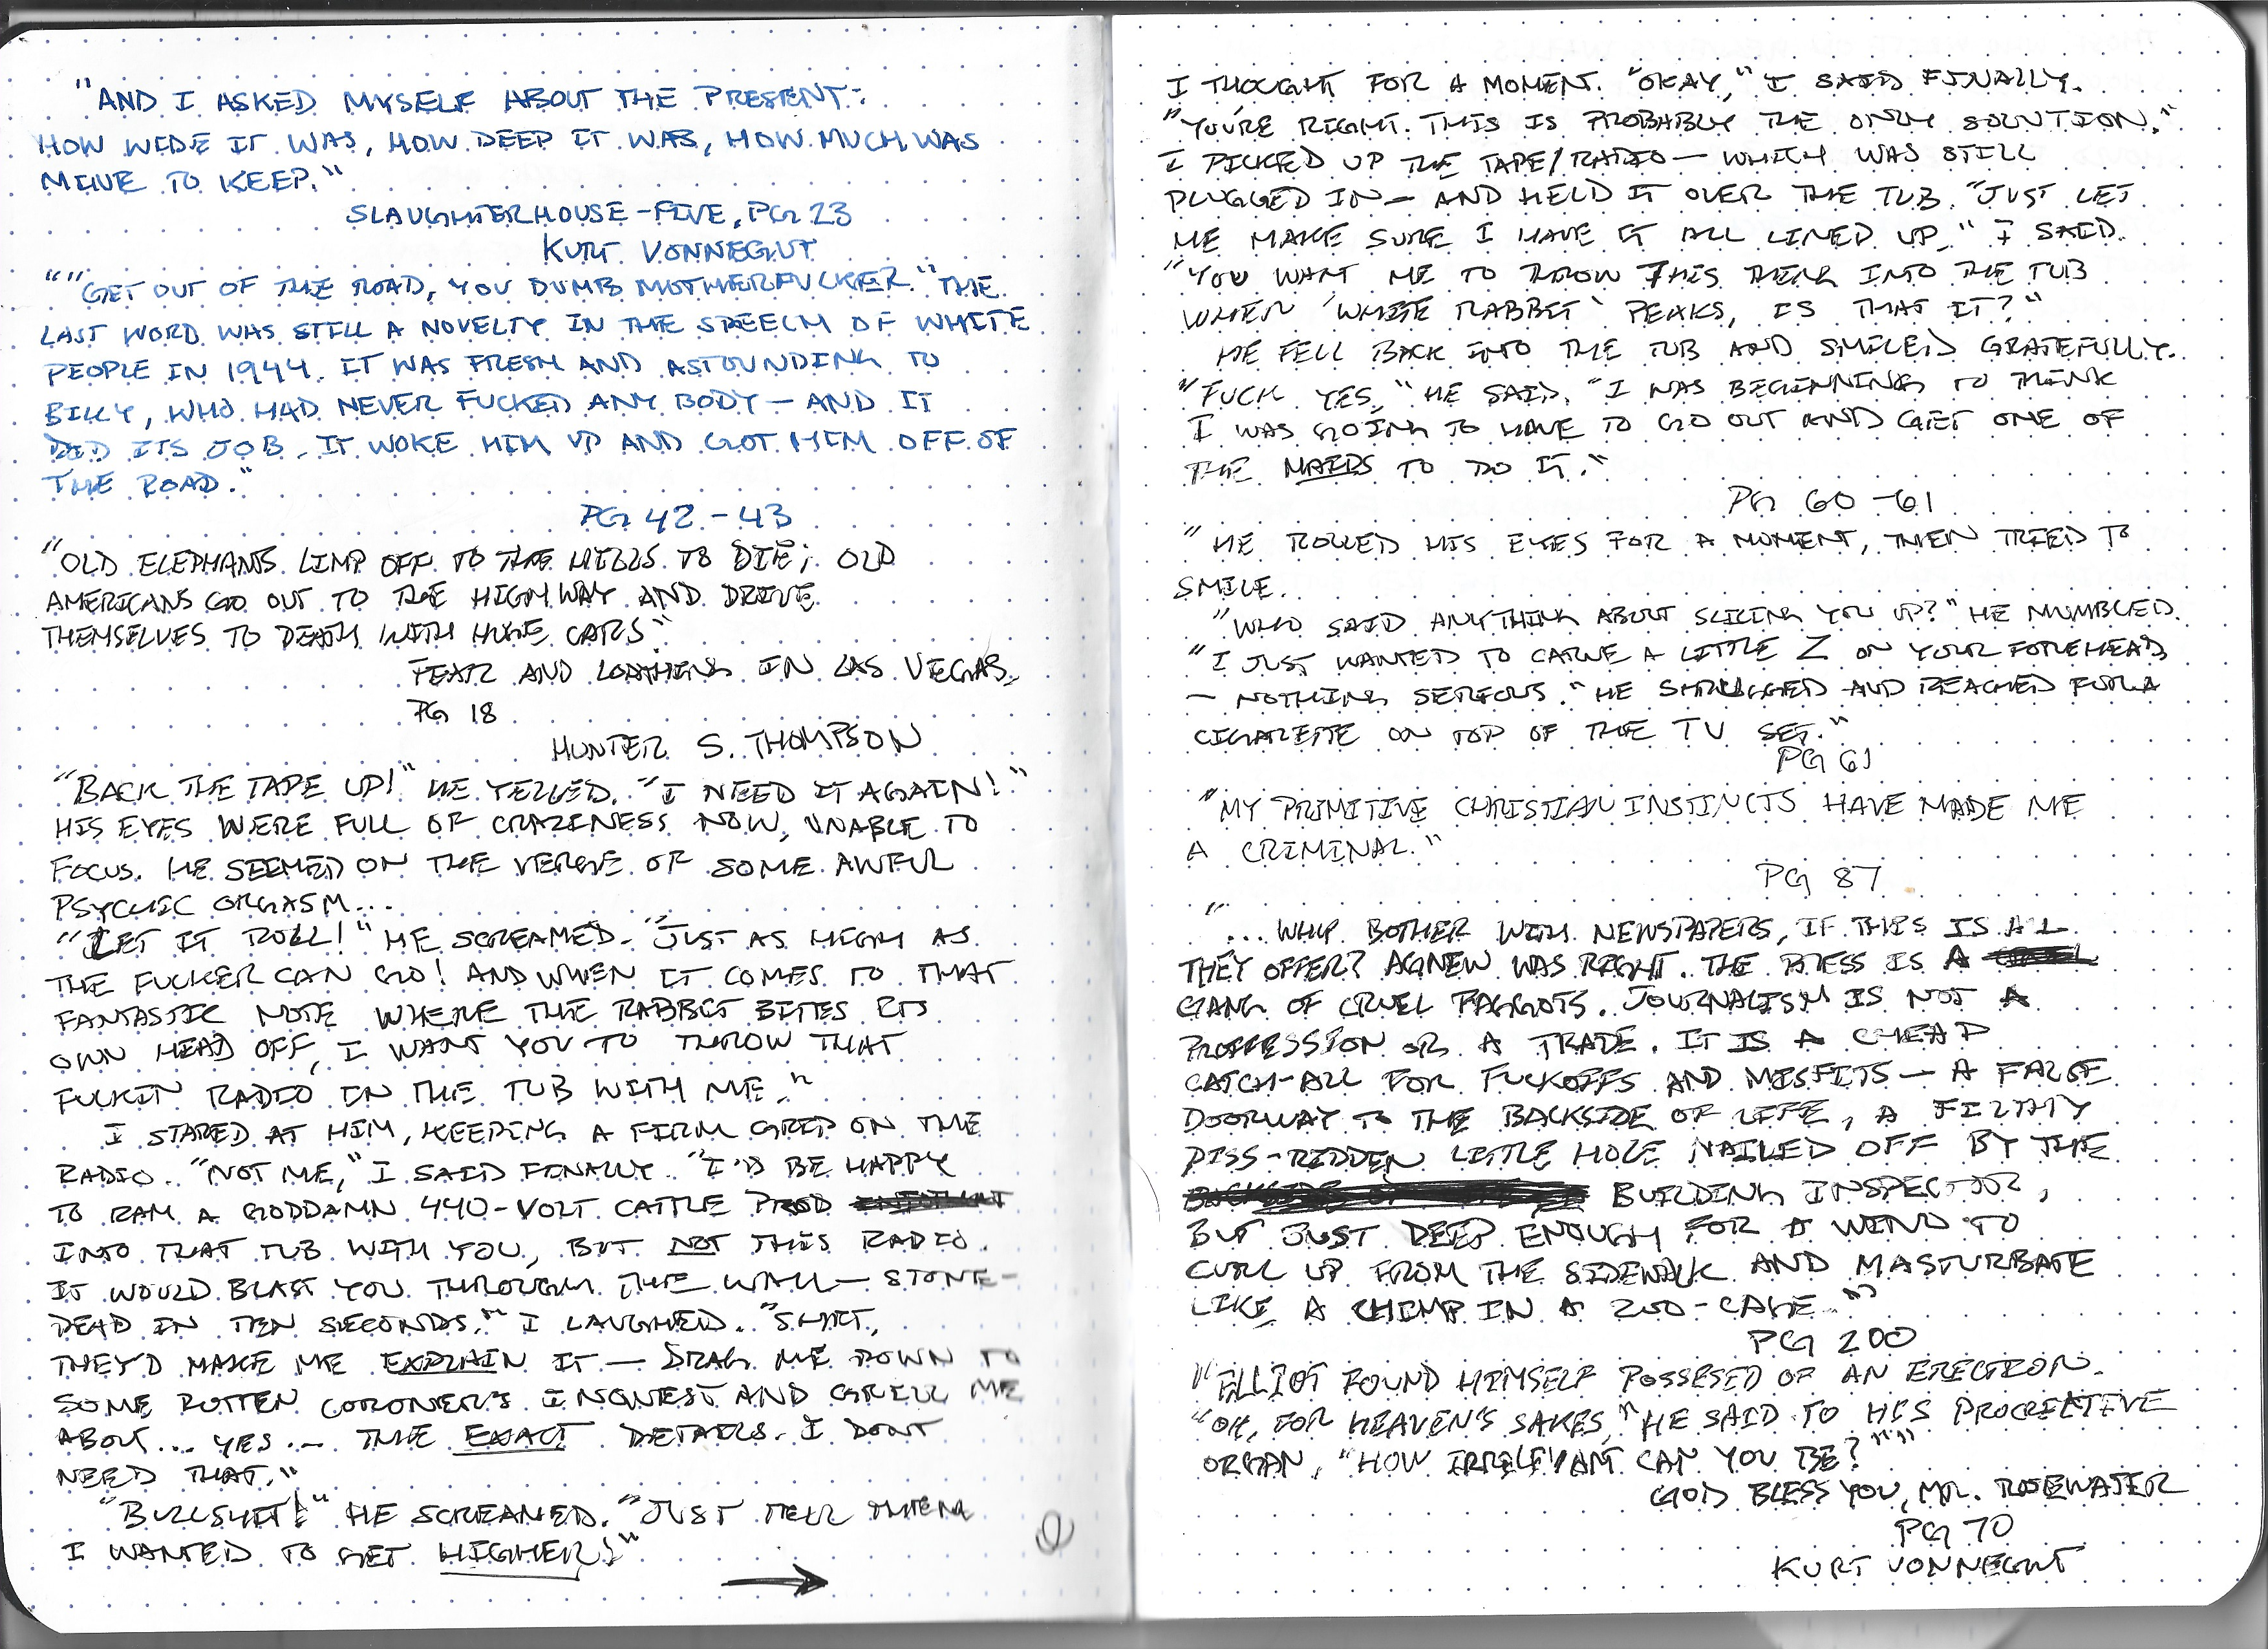 "AND I ASKED MYSELF ABOUT THE PRESENT:
HOW WIDE IT WAS, HOW DEEP IT WAS, HOW MUCH WAS
MINE TO KEEP."
SLAUGHTERHOUSE-FIVE, PG 23
KURT VONNEGUT
""GET OUT OF THE ROAD, YOU DUMB MOTHERFUCKER." THE
LAST WORD WAS STILL A NOVELTY IN THE SPEECH OF WHITE
PEOPLE IN 1944. IT WAS FRESH AND ASTOUNDING TO
BILLY, WHO HAD NEVER FUCKED ANY BODY — AND IT
DID ITS JOB. IT WOKE HIM UP AND GOT HIM OFF OF
THE ROAD."
PG 42-43
"OLD ELEPHANTS LIMP OFF TO THE HILLS TO DIE; OLD
AMERICANS GO OUT TO THE HIGHWAY AND DRIVE
THEMSELVES TO DEATH WITH HUGE CARS"
FEAR AND LOATHING IN LAS VEGAS,
PG 18
HUNTER S. THOMPSON
"BACK THE TAPE UP!" HE YELLED. "I NEED IT AGAIN!"
HIS EYES WERE FULL OF CRAZINESS NOW, UNABLE TO
FOCUS. HE SEEMED ON THE VERGE OF SOME AWFUL
PSYCHIC ORGASM...
"LET IT ROLL!" HE SCREAMED. "JUST AS HIGH AS
THE FUCKER CAN GO! AND WHEN IT COMES TO THAT
FANTASTIC NOTE WHERE THE RABBIT BITES ITS
OWN HEAD OFF, I WANT YOU TO THROW THAT
FUCKIN RADIO IN THE TUB WITH ME."
I STARED AT HIM, KEEPING A FIRM GRIP ON THE
RADIO. "NOT ME," I SAID FINALLY. "I'D BE HAPPY
TO RAM A GODDAMN 440-VOLT CATTLE PROD
INTO THAT TUB WITH YOU, BUT NOT THIS RADIO.
IT WOULD BLAST YOU THROUGH THE WALL — STONE-
DEAD IN TEN SECONDS." I LAUGHED. "SHIT,
THEY'D MAKE ME EXPLAIN IT — DRAG ME DOWN TO
SOME ROTTEN CORONER'S INQUEST AND GRILL ME
ABOUT... YES... THE EXACT DETAILS. I DONT
NEED THAT."
"BULLSHIT!" HE SCREAMED. "JUST TELL THEM
I WANTED TO GET HIGHER!"
I THOUGHT FOR A MOMENT. "OKAY," I SAID FINALLY.
"YOU'RE RIGHT. THIS IS PROBABLY THE ONLY SOLUTION."
I PICKED UP THE TAPE/RADIO — WHICH WAS STILL
PLUGGED IN — AND HELD IT OVER THE TUB. "JUST LET
ME MAKE SURE I HAVE IT ALL LINED UP," I SAID.
"YOU WANT ME TO THROW THIS THING INTO THE TUB
WHEN 'WHITE RABBIT' PEAKS, IS THAT IT?"
HE FELL BACK INTO THE TUB AND SMILED GRATEFULLY.
"FUCK YES," HE SAID. "I WAS BEGINNING TO THINK
I WAS GOING TO HAVE TO GO OUT AND GET ONE OF
THE MAIDS TO DO IT."
PG 60-61
"HE ROLLED HIS EYES FOR A MOMENT, THEN TRIED TO
SMILE.
"WHO SAID ANYTHING ABOUT SLICING YOU UP?" HE MUMBLED.
"I JUST WANTED TO CARVE A LITTLE Z ON YOUR FOREHEAD
— NOTHING SERIOUS." HE SHRUGGED AND REACHED FOR A
CIGARETTE ON TOP OF THE TV SET."
PG 61
"MY PRIMITIVE CHRISTIAN INSTINCTS HAVE MADE ME
A CRIMINAL."
PG 87
"... WHY BOTHER WITH NEWSPAPERS, IF THIS IS ALL
THEY OFFER? AGNEW WAS RIGHT. THE PRESS IS A
GANG OF CRUEL FAGGOTS. JOURNALISM IS NOT A
PROFFESSION OR A TRADE. IT IS A CHEAP
CATCH-ALL FOR FUCKOFFS AND MISFITS — A FALSE
DOORWAY TO THE BACKSIDE OF LIFE, A FILTHY
PISS-RIDDEN LITTLE HOLE NAILED OFF BY THE
BUILDING INSPECTOR,
BUT JUST DEEP ENOUGH FOR A WINO TO
CURL UP FROM THE SIDEWALK AND MASTURBATE
LIKE A CHIMP IN A ZOO-CAGE."
PG 200
"ELLIOT FOUND HIMSELF POSSESED OF AN ERECTION.
"OH, FOR HEAVEN'S SAKES," HE SAID TO HIS PROCREATIVE
ORGAN, "HOW IRRELEVANT CAN YOU BE?""
GOD BLESS YOU, MR. ROSEWATER
PG 70
KURT VONNEGUT